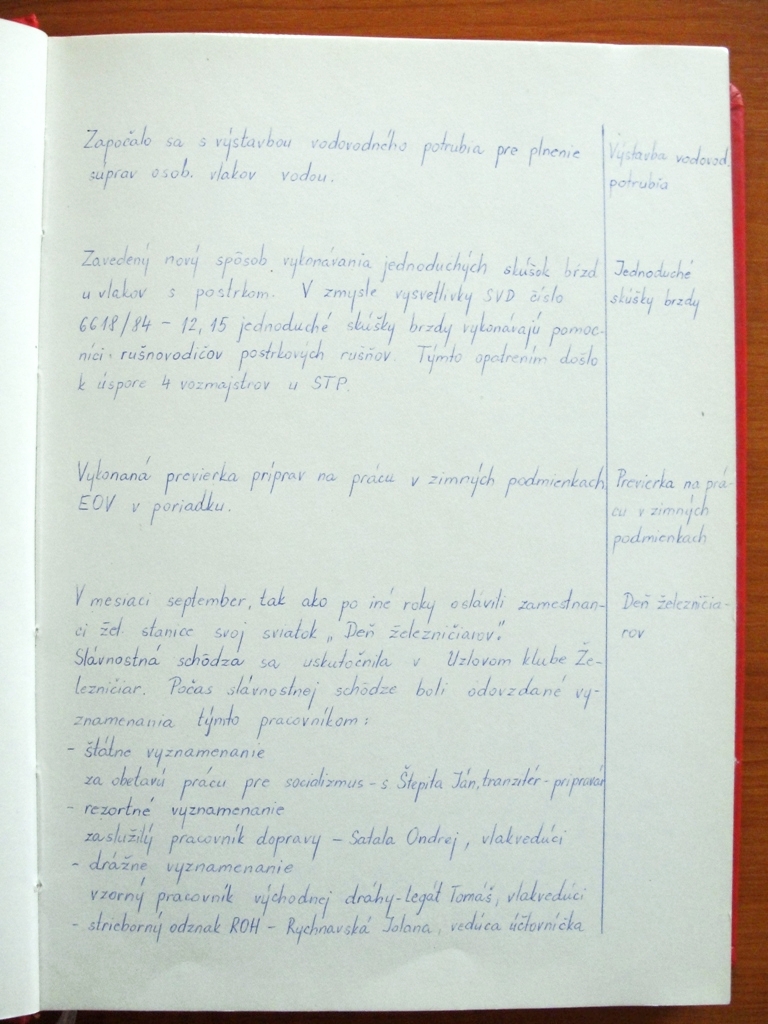 Započalo sa s výstavbou vodovodného potrubia pre plnenie
súprav osob. vlakov vodou.
Výstavba vodovod.
potrubia
Zavedený nový spôsob vykonávania jednoduchých skúšok bŕzd
u vlakov s postrkom. V zmysle vysvetlivky SVD číslo
6618/84 - 12, 15 jednoduché skúšky brzdy vykonávajú pomoc-
níci rušnovodičov postrkových rušňov. Týmto opatrením došlo
k úspore 4 vozmajstrov u STP.
Jednoduché
skúšky brzdy
Vykonaná previerka príprav na prácu v zimných podmienkach,
EOV v poriadku.
Previerka na prá-
cu v zimných
podmienkach
V mesiaci september, tak ako po iné roky oslávili zamestnan-
ci žel. stanice svoj sviatok „Deň železničiarov."
Slávnostná schôdza sa uskutočnila v Uzlovom klube Že-
lezničiar. Počas slávnostnej schôdze boli odovzdané vy-
znamenania týmto pracovníkom:
- štátne vyznamenanie
za obetavú prácu pre socializmus - s. Štepita Ján, tranzitér - prípravár
- rezortné vyznamenanie
zaslúžilý pracovník dopravy - Satala Ondrej, vlakvedúci
- drážne vyznamenanie
vzorný pracovník východnej dráhy - Legát Tomáš, vlakvedúci
- strieborný odznak ROH - Rychnavská Jolana, vedúca účtovníčka
Deň železničia-
rov